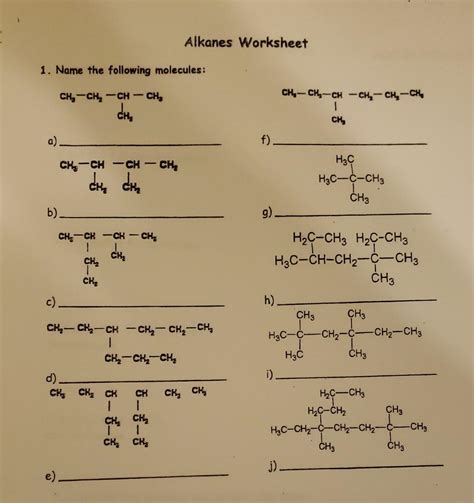 Alkanes Worksheet
1. Name the following molecules:
CH₃—CH₂—CH—CH₃
CH₃
a)
CH₃—CH—CH—CH₃
CH₃ CH₃
b)
CH₃—CH—CH—CH₃
CH₂ CH₃
CH₃
c)
CH₃—CH₂—CH—CH₂—CH₂—CH₃
CH₂—CH₂—CH₃
d)
CH₃ CH₂ CH CH CH₂ CH₃
CH₂ CH₂
CH₃ CH₃
e)
CH₃—CH₂—CH—CH₂—CH₂—CH₃
CH₃
f)
H₃C
H₃C—C—CH₃
CH₃
g)
H₂C—CH₃ H₂C—CH₃
H₃C—CH—CH₂—C—CH₃
CH₃
h)
CH₃ CH₃
H₃C—C—CH₂—C—CH₂—CH₃
H₃C CH₃
i)
H₂C—CH₃
H₂C—CH₂ CH₃
H₃C—CH₂—C—CH₂—CH₂—C—CH₃
CH₃ CH₃
j)